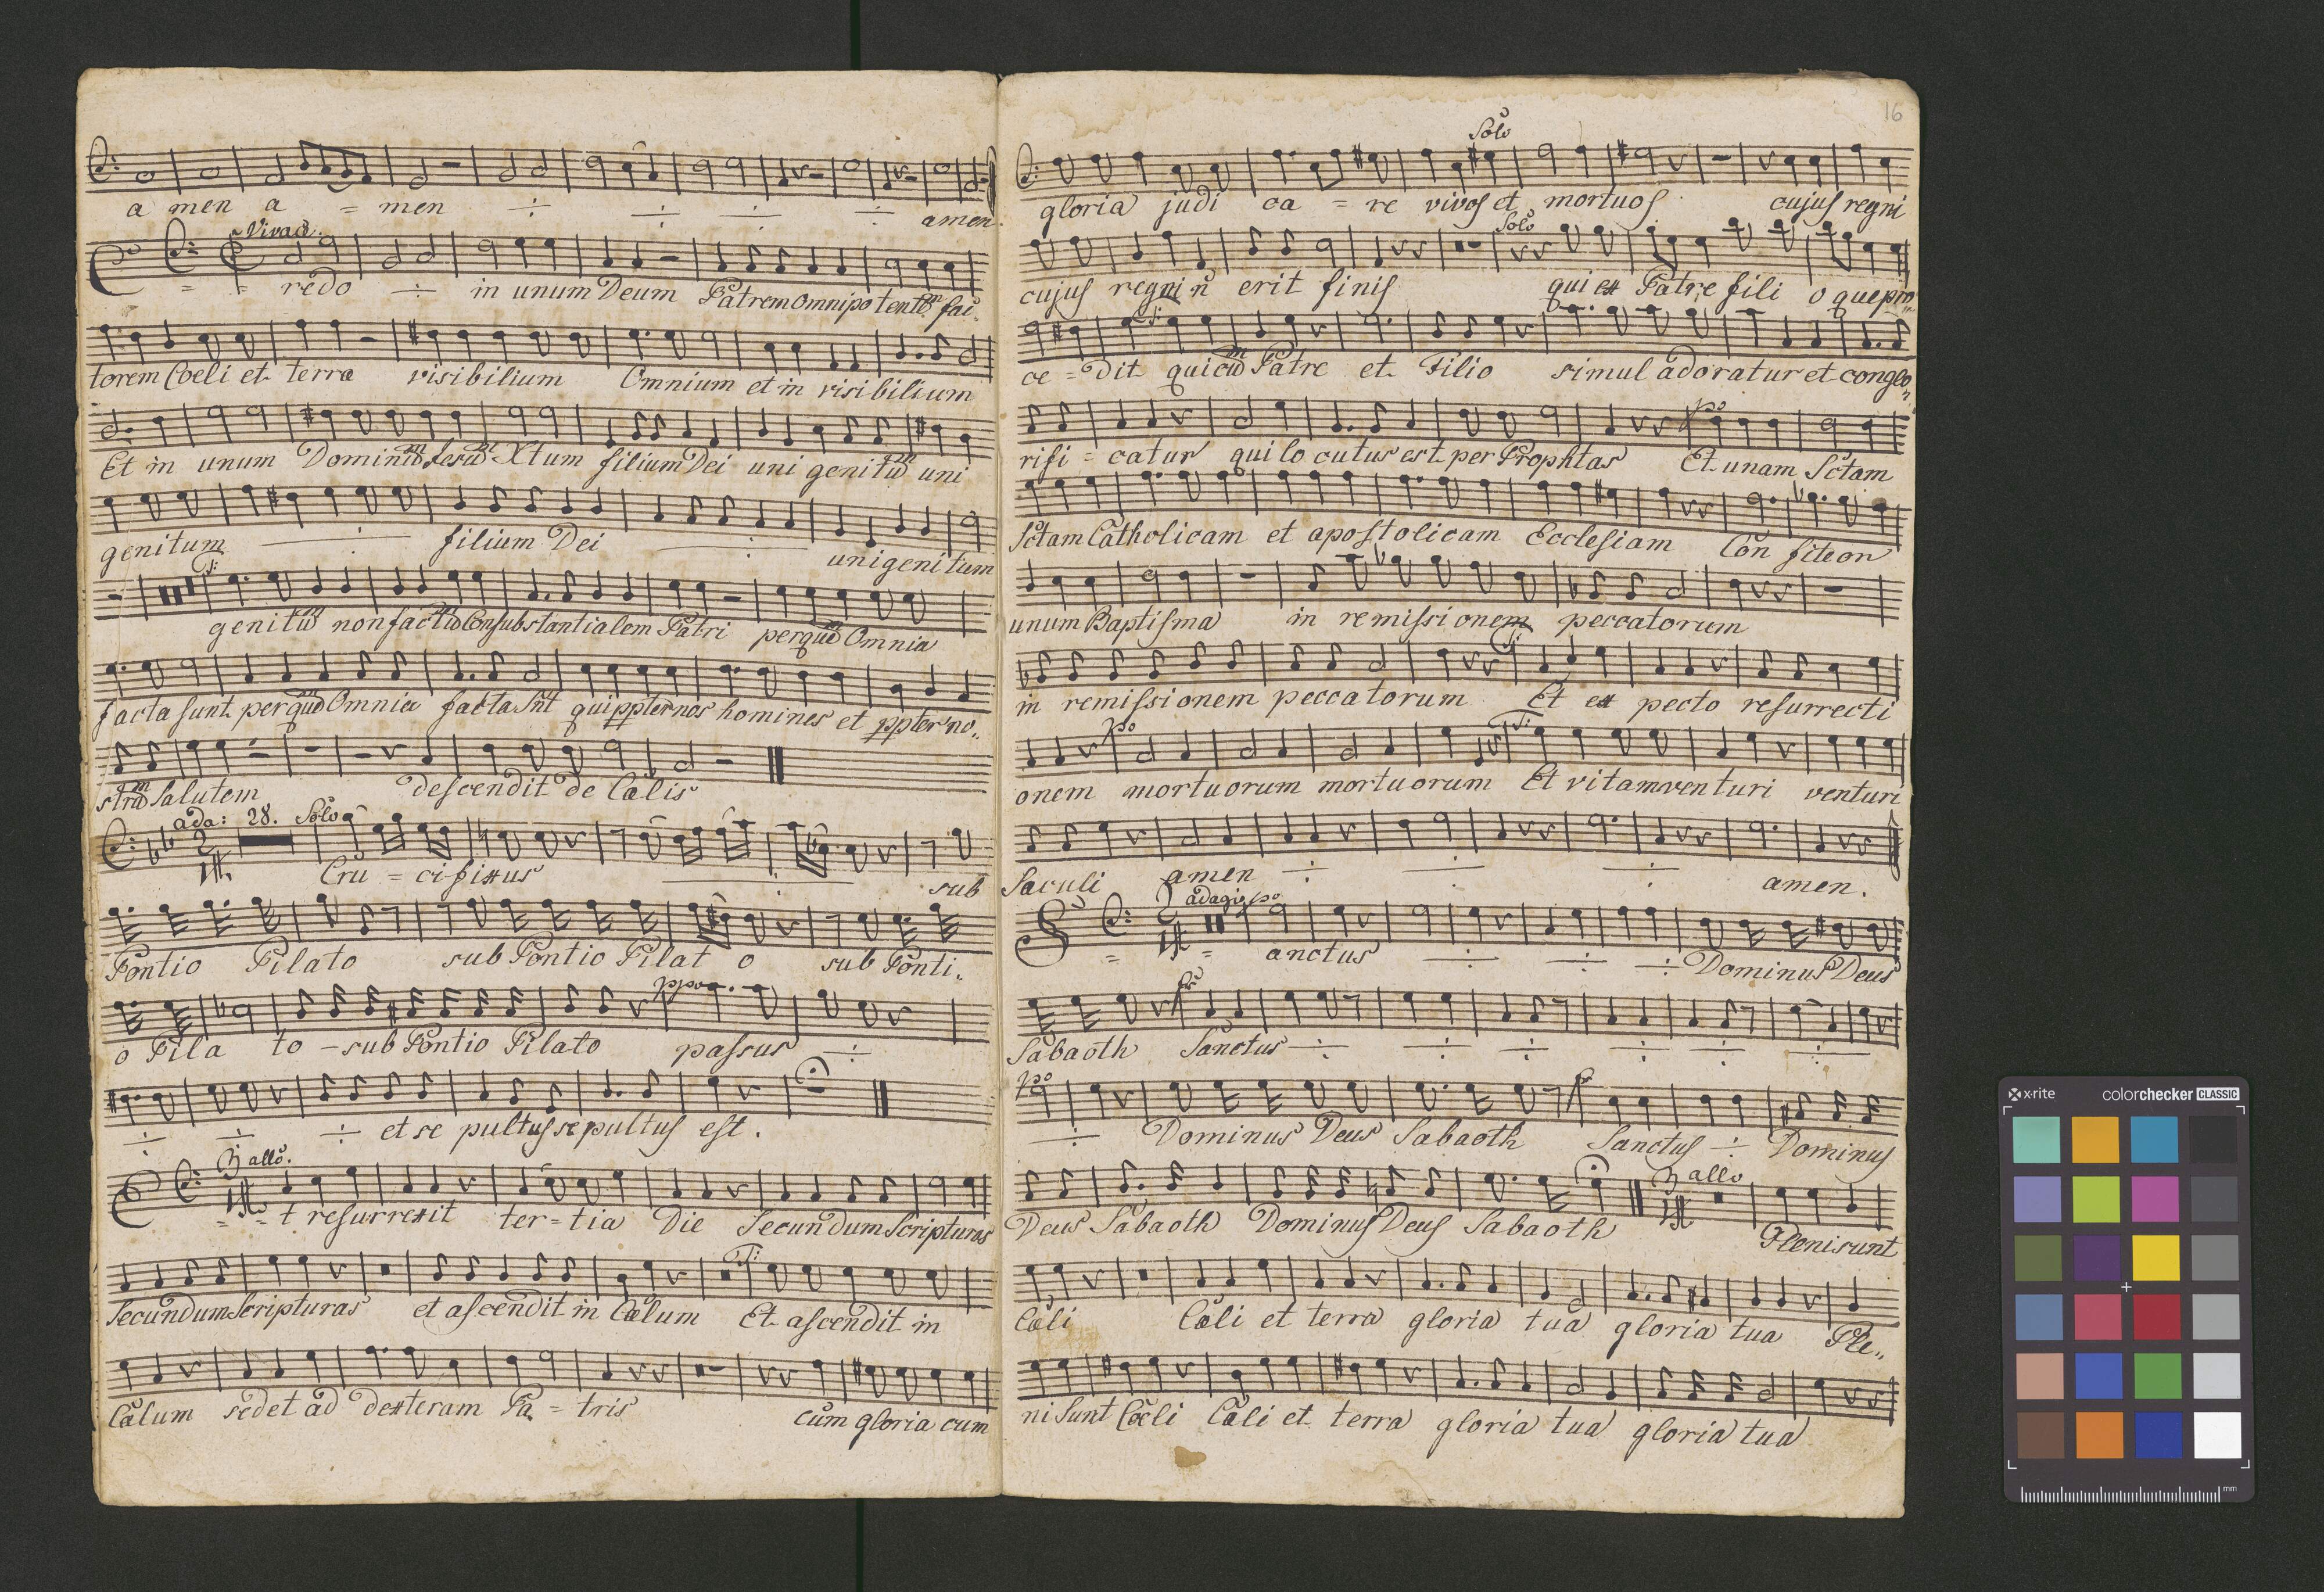 a men a = men ÷ ÷ ÷ ÷ amen.
Vivace.
C = = redo ÷ in unum Deum Patrem Omnipotentem fac
torem Coeli et terra visibilium Omnium et in visibilium
Et in unum Dominum Jesum Xtum filium Dei uni genitum uni
genitum ÷ filium Dei ÷ unigenitum
T:
genitum non factum Consubstantialem Patri per quem Omnia
facta sunt per quem Omnia facta snt qui ppter nos homines et ppter no„
stram Salutem descendit de Cælis
ada: 28. Solo
2
4
Cru = ci fixus ÷ sub
Pontio Pilato sub Pontio Pilat o sub Ponti„
ppo
o Pila to - sub Pontio Pilato passus ÷
÷ ÷ ÷ et se pultus sepultus est.
3 allo.
4
E = = t resurrexit ter = tia Die Secundum Scripturas
T:
Secundum Scripturas et ascendit in Cælum Et ascendit in
Cælum sedet ad dexteram Pa = tris cum gloria cum
16
Solo
gloria judi ca = re vivos et mortuos cujus regni
Solo
cujus regni ñ erit finis qui ex Patre fili o que pro„
T:
ce = dit qui cum Patre et Filio simul adoratur et conglo„
po
rifi = catur qui locutus est per Prophtas Et unam Sctam
Sctam Catholicam et apostolicam Ecclesiam Con fiteor
unum Baptisma in remissionem peccatorum
T:
in remissionem peccatorum Et ex pecto resurrecti
po T:
onem mortuorum mortuorum Et vitam venturi venturi
Saculi amen ÷ ÷ ÷ amen.
2 adagio po
4
S = = anctus ÷ ÷ ÷ Dominus Deus
fr
Sabaoth Sanctus ÷ ÷ ÷ ÷ ÷ ÷
po f
÷ Dominus Deus Sabaoth Sanctus ÷ Dominus
3 allo
4
Deus Sabaoth Dominus Deus Sabaoth Pleni sunt
Cæli Cæli et terra gloria tua gloria tua Ple„
ni Sunt Cœli Cæli et terra gloria tua gloria tua
x·rite colorchecker CLASSIC
mm